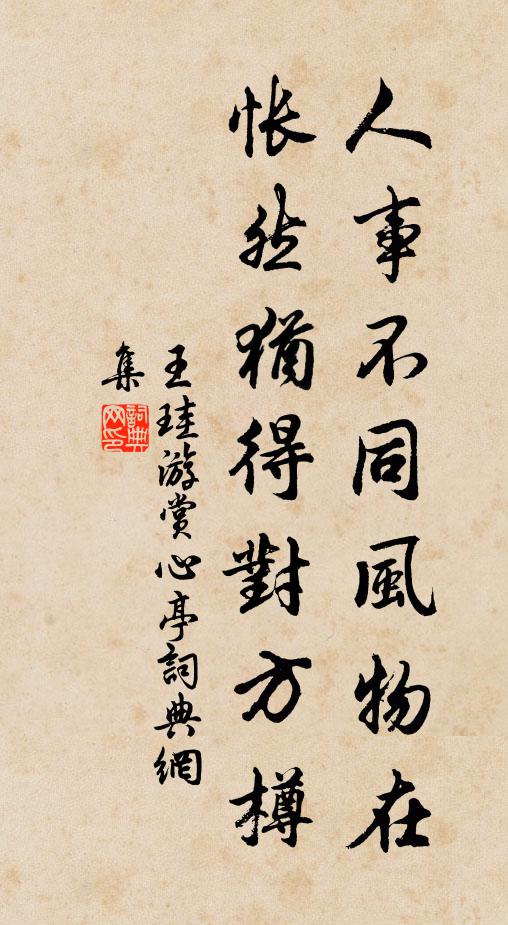 人事不同風物在
悵然猶得對方樽
王珪游賞心亭詞典網
集
詞典网印